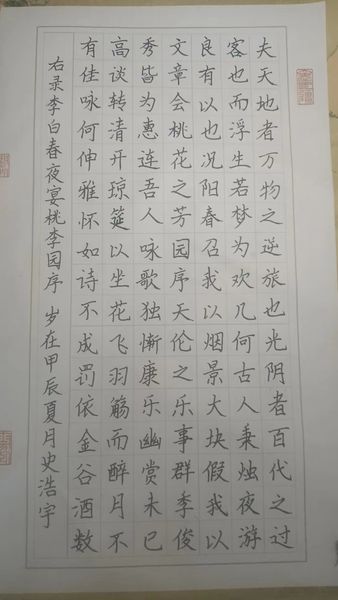 夫天地者万物之逆旅也光阴者百代之过
客也而浮生若梦为欢几何古人秉烛夜游
良有以也况阳春召我以烟景大块假我以
文章会桃花之芳园序天伦之乐事群季俊
秀皆为惠连吾人咏歌独惭康乐幽赏未已
高谈转清开琼筵以坐花飞羽觞而醉月不
有佳咏何伸雅怀如诗不成罚依金谷酒数
右录李白春夜宴桃李园序 岁在甲辰夏月史浩宇